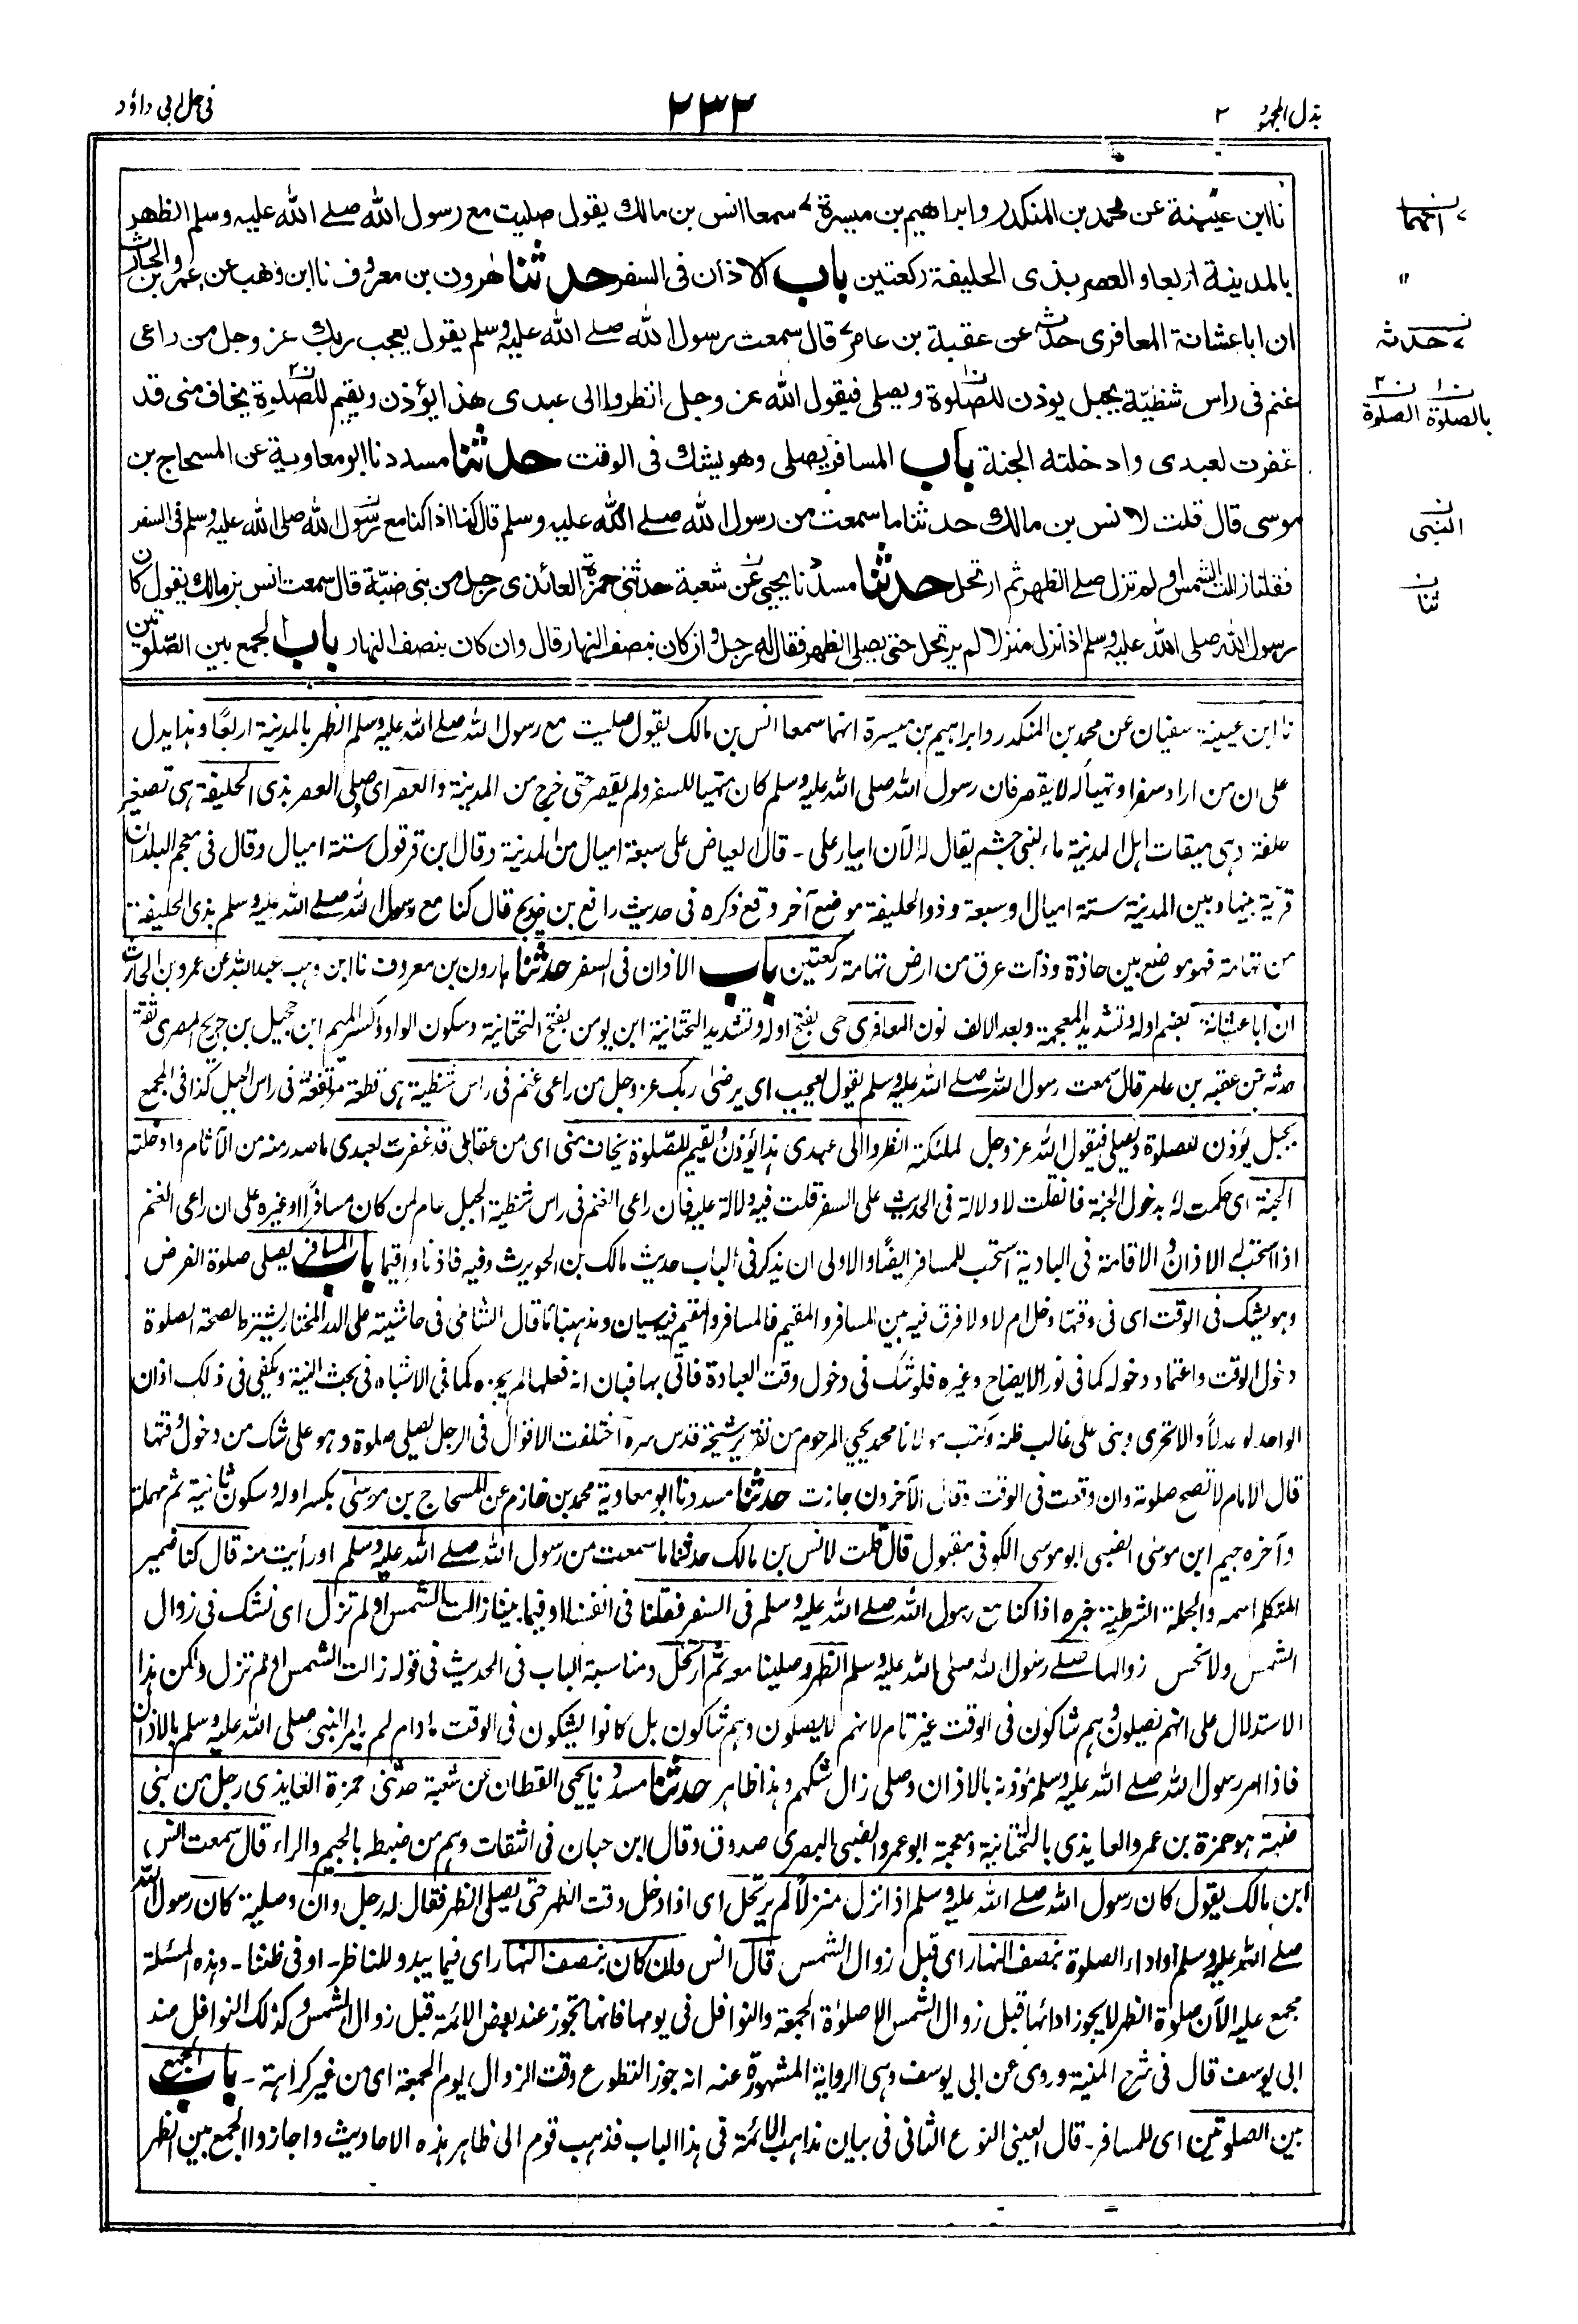 بذل المجهود ٢
٢٣٣
في حل ابي داؤد
نا ابن عيينة عن محمد بن المنكدر وابراهيم بن ميسرة سمعا انس بن مالك يقول صليت مع رسول الله صلے الله عليه وسلم الظهر
بالمدينة اربعا والعصر بذى الحليفة ركعتين باب الاذان فى السفر حدثنا هرون بن معروف نا ابن وهب عن عمرو بن الحارث
ان ابا عشانة المعافرى حدثه عن عقبة بن عامر قال سمعت رسول الله صلے الله عليه وسلم يقول يعجب ربك عز وجل من راعى
غنم فى راس شظيّة بجبل يوذن للصلوة ويصلى فيقول الله عز وجل انظروا الى عبدى هذا يؤذن ويقيم للصلوة يخاف منى قد
غفرت لعبدى وادخلته الجنة باب المسافر يصلى وهو يشك فى الوقت حدثنا مسدد نا ابو معاوية عن المسحاج بن
موسى قال قلت لانس بن مالك حدثنا ما سمعت من رسول الله صلے الله عليه وسلم قال كنا اذا كنا مع رسول الله صلى الله عليه وسلم فى السفر
فقلنا زالت الشمس او لم تزل صلے الظهر ثم ارتحل حدثنا مسدد نا يحيى عن شعبة حدثنى حمزة العائذى رجل من بنى ضبّة قال سمعت انس بن مالك يقول كان
رسول الله صلى الله عليه وسلم اذا نزل منزلا لم يرتحل حتى يصلى الظهر فقال له رجل وان كان بنصف النهار قال وان كان بنصف النهار باب الجمع بين الصّلوتين
انهما
"
حدثه
ن١ ن٢
بالصلوة الصلوة
النبى
ثنا
نا ابن عيينة سفيان عن محمد بن المنكدر وابراهيم بن ميسرة انهما سمعا انس بن مالك يقول صليت مع رسول الله صلے الله عليه وسلم الظهر بالمدينة اربعًا وهذا يدل
على ان من اراد سفرا وتهيأ له لا يقصر فان رسول الله صلى الله عليه وسلم كان متهيا للسفر ولم يقصر حتى خرج من المدينة والعصر اى صلى العصر بذى الحليفة هى تصغير
حلفة وهى ميقات اهل المدينة ماء لبنى جشم يقال له الآن ابيار على - قال العياض على سبعة اميال من المدينة وقال ابن قرقول ستة اميال وقال فى معجم البلدان
قرية بينها وبين المدينة ستة اميال او سبعة وذو الحليفة موضع آخر وقع ذكره فى حديث رافع بن خديج قال كنا مع رسول الله صلے الله عليه وسلم بذى الحليفة
من تهامة فهو موضع بين حاذة وذات عرق من ارض تهامة ركعتين باب الاذان فى السفر حدثنا هارون بن معروف نا ابن وهب عبد الله عن عمرو بن الحارث
ان ابا عشانة بضم اوله وتشديد المعجمة وبعد الالف نون المعافرى حى بفتح اوله وتشديد التحتانية ابن يومن بفتح التحتانية وسكون الواو وكسر الميم ابن جحيل بن جريج المصرى ثقة
حدثه عن عقبه بن عامر قال سمعت رسول الله صلے الله عليه وسلم يقول يعجب اى يرضى ربك عز وجل من راعى غنم فى راس شظية هى قطعة مرتفعة فى راس الجبل كذا فى المجمع
بجبل يؤذن للصلوة ويصلى فيقول الله عز وجل لملئكته انظروا الى عبدى هذا يؤذن ويقيم للصّلوة يخاف منى اى من عقابى قد غفرت لعبدى ما صدر منه من الآثام وادخلته
الجنة اى حكمت له بدخول الجنة فان قلت لا دلالة فى الحديث على السفر قلت فيه دلالة عليه فان راعى الغنم فى راس شظية الجبل عام لمن كان مسافرًا او غيره على ان راعى الغنم
اذا استحب له الاذان والاقامة فى البادية استحب للمسافر ايضًا والاولى ان يذكر فى الباب حديث مالك بن الحويرث وفيه فاذنا واقيما باب المسافر يصلى صلوة الفرض
وهو يشك فى الوقت اى فى وقتها دخل ام لا ولا فرق فيه بين المسافر والمقيم فالمسافر والمقيم فيه سيان ومذهبنا ما قال الشامى فى حاشيته على الدر المختار يشترط لصحة الصلوة
دخول الوقت واعتقاد دخوله كما فى نور الايضاح وغيره فلو شك فى دخول وقت العبادة فاتى بها فبان انه فعلها لم يجزه كما فى الاشباه فى بحث النية ويكفى فى ذلك اذان
الواحد لو عدلاً والا تحرى وبنى على غالب ظنه وكتب مولانا محمد يحيي المرحوم من تقرير شيخه قدس سره اختلفت الاقوال فى الرجل يصلى صلوة وهو على شك من دخول وقتها
قال الامام لا تصح صلوته وان وقعت فى الوقت وقال الآخرون جازت حدثنا مسدد نا ابو معاوية محمد بن خازم عن المسحاج بن موسى بكسر اوله وسكون ثانية ثم مهملة
وآخره جيم ابن موسى الضبى ابو موسى الكوفى مقبول قال قلت لانس بن مالك حدثنا ما سمعت من رسول الله صلے الله عليه وسلم او رأيت منه قال كنا ضمير
المتكلم اسمه والجملة الشرطية خبره اذا كنا مع رسول الله صلے الله عليه وسلم فى السفر فقلنا فى انفسنا او فيما بيننا زالت الشمس او لم تزل اى نشك فى زوال
الشمس ولا نحس زوالها صلے رسول الله صلى الله عليه وسلم الظهر وصلينا معه ثم ارتحل ومناسبة الباب فى الحديث فى قوله زالت الشمس او لم تزل ولكن هذا
الاستدلال على انهم يصلون وهم شاكون فى الوقت غير تام لانهم لا يصلون وهم شاكون بل كانوا يشكون فى الوقت مادام لم يامر النبى صلى الله عليه وسلم بالاذان
فاذا امر رسول الله صلے الله عليه وسلم مؤذنه بالاذان وصلى زال شكهم وهذا ظاهر حدثنا مسدد نا يحيى القطان عن شعبة حدثنى حمزة العايذى رجل من بنى
ضبة هو حمزة بن عمرو العايذى بالتحتانية ومعجمة ابو عمرو الضبى البصرى صدوق وقال ابن حبان فى الثقات وهم من ضبطه بالجيم والراء قال سمعت انس
ابن مالك يقول كان رسول الله صلے الله عليه وسلم اذا نزل منزلًا لم يرتحل اى اذا دخل وقت الظهر حتى يصلى الظهر فقال له رجل وان وصلية كان رسول الله
صلے الله عليه وسلم او اداء الصلوة بنصف النهار اى قبل زوال الشمس قال انس وان كان بنصف النهار اى فيما يبدو للناظر - او فى ظننا - وهذه المسئلة
مجمع عليه الآن صلوة الظهر لا يجوز ادائها قبل زوال الشمس الا صلوٰة الجمعة والنوافل فى يومها فانها تجوز عند بعض الائمة قبل زوال الشمس وكذلك النوافل عند
ابى يوسف قال فى شرح المنية وروى عن ابى يوسف وهى الرواية المشهورة عنه انه جوز التطوع وقت الزوال يوم الجمعة اى من غير كراهة - باب الجمع
بين الصلوتين اى للمسافر - قال العينى النوع الثانى فى بيان مذاهب الائمة فى هذا الباب فذهب قوم الى ظاهر هذه الاحاديث واجازوا الجمع بين الظهر